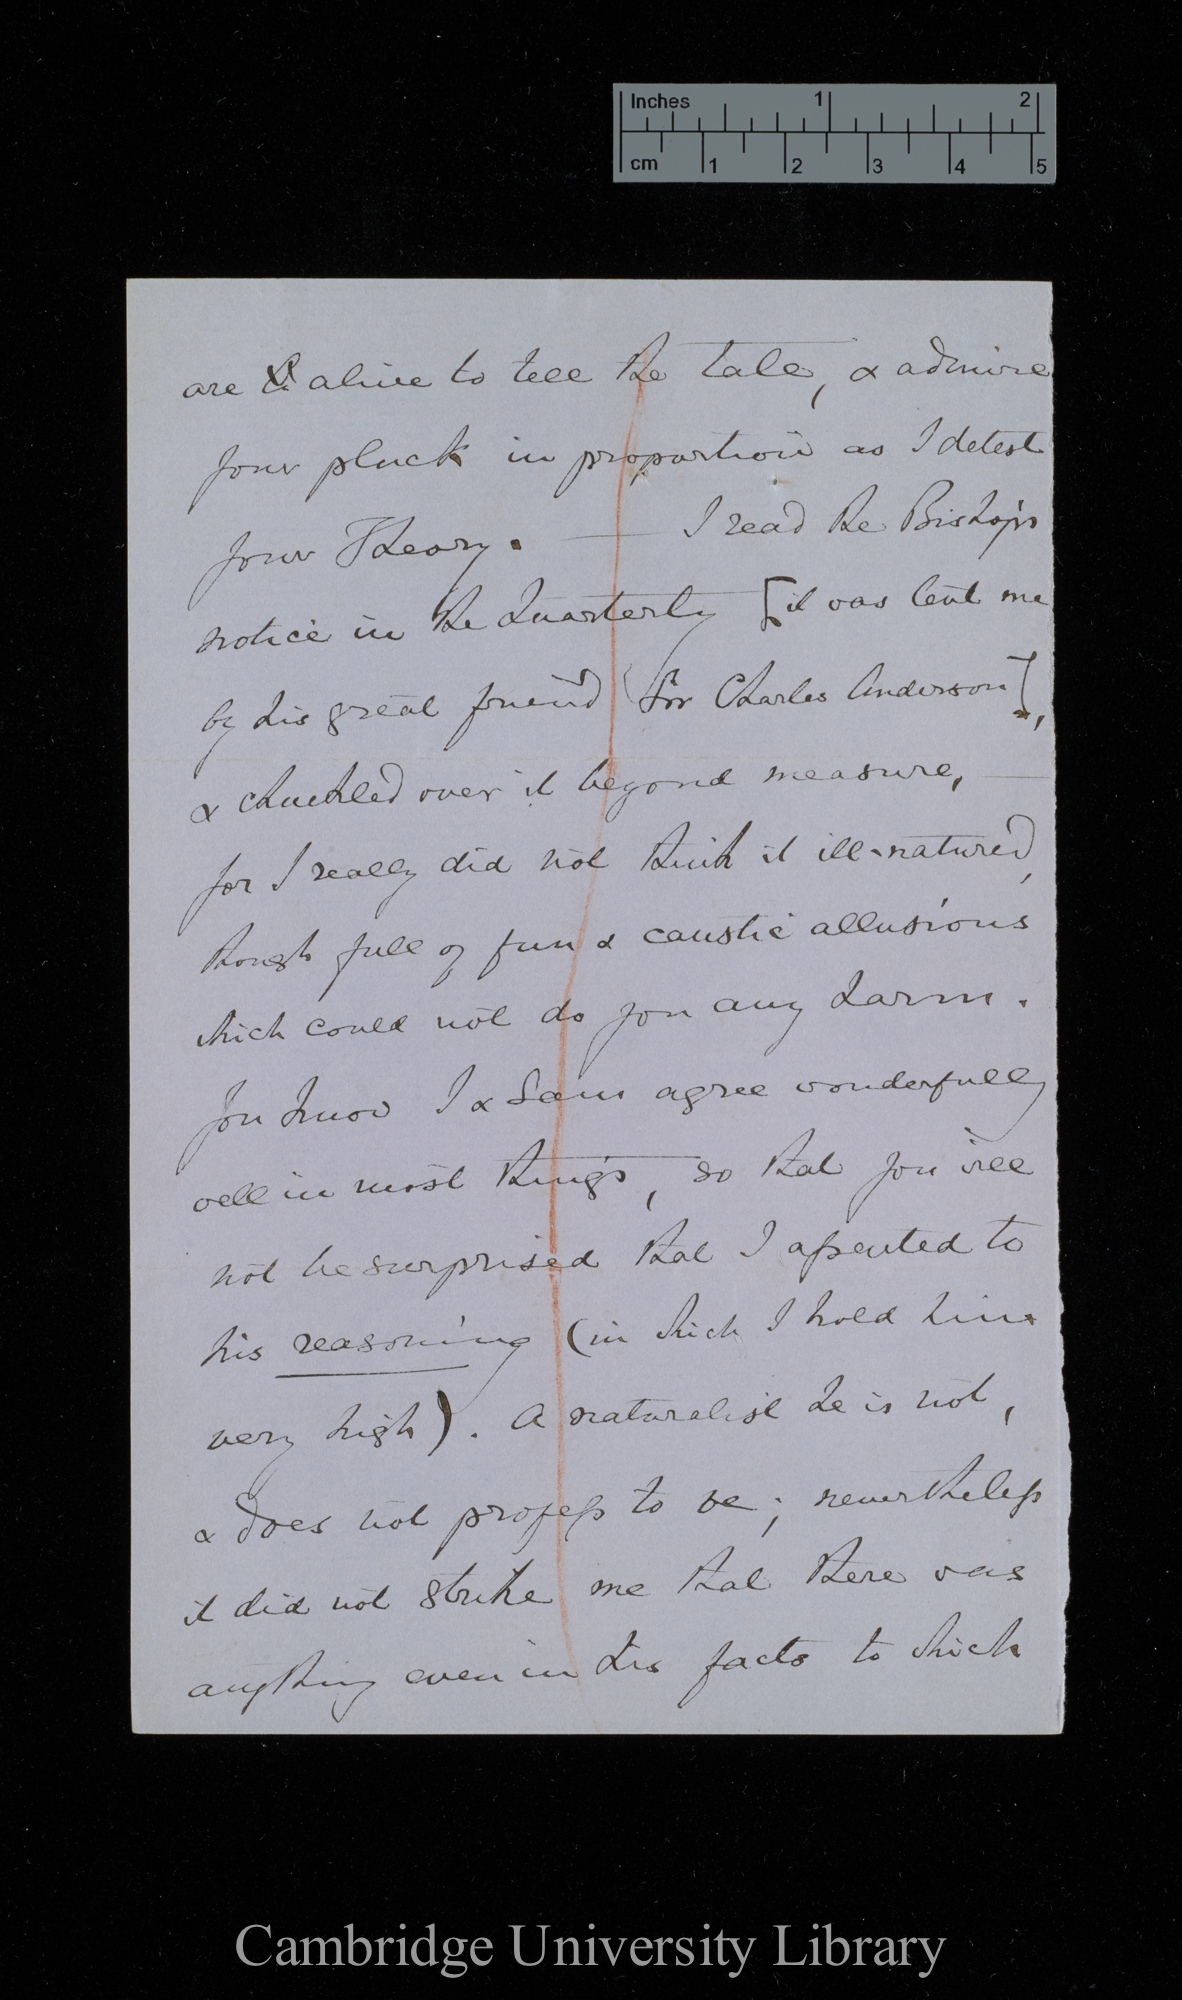 Inches 1 2
cm 1 2 3 4 5
are alive to tell the tale, & admire
your pluck in proportion as I detest
your Theory. — I read the Bishop's
notice in the Quarterly [it was lent me
by his great friend Sir Charles Anderson],
& chuckled over it beyond measure, —
for I really did not think it ill-natured,
though full of fun & caustic allusions
which could not do you any harm.
You know I & Sam agree wonderfully
well in most things, so that you will
not be surprised that I assented to
his reasoning (in which I hold him
very high). A naturalist he is not,
& does not profess to be; nevertheless
it did not strike me that there was
anything even in his facts to which
Cambridge University Library